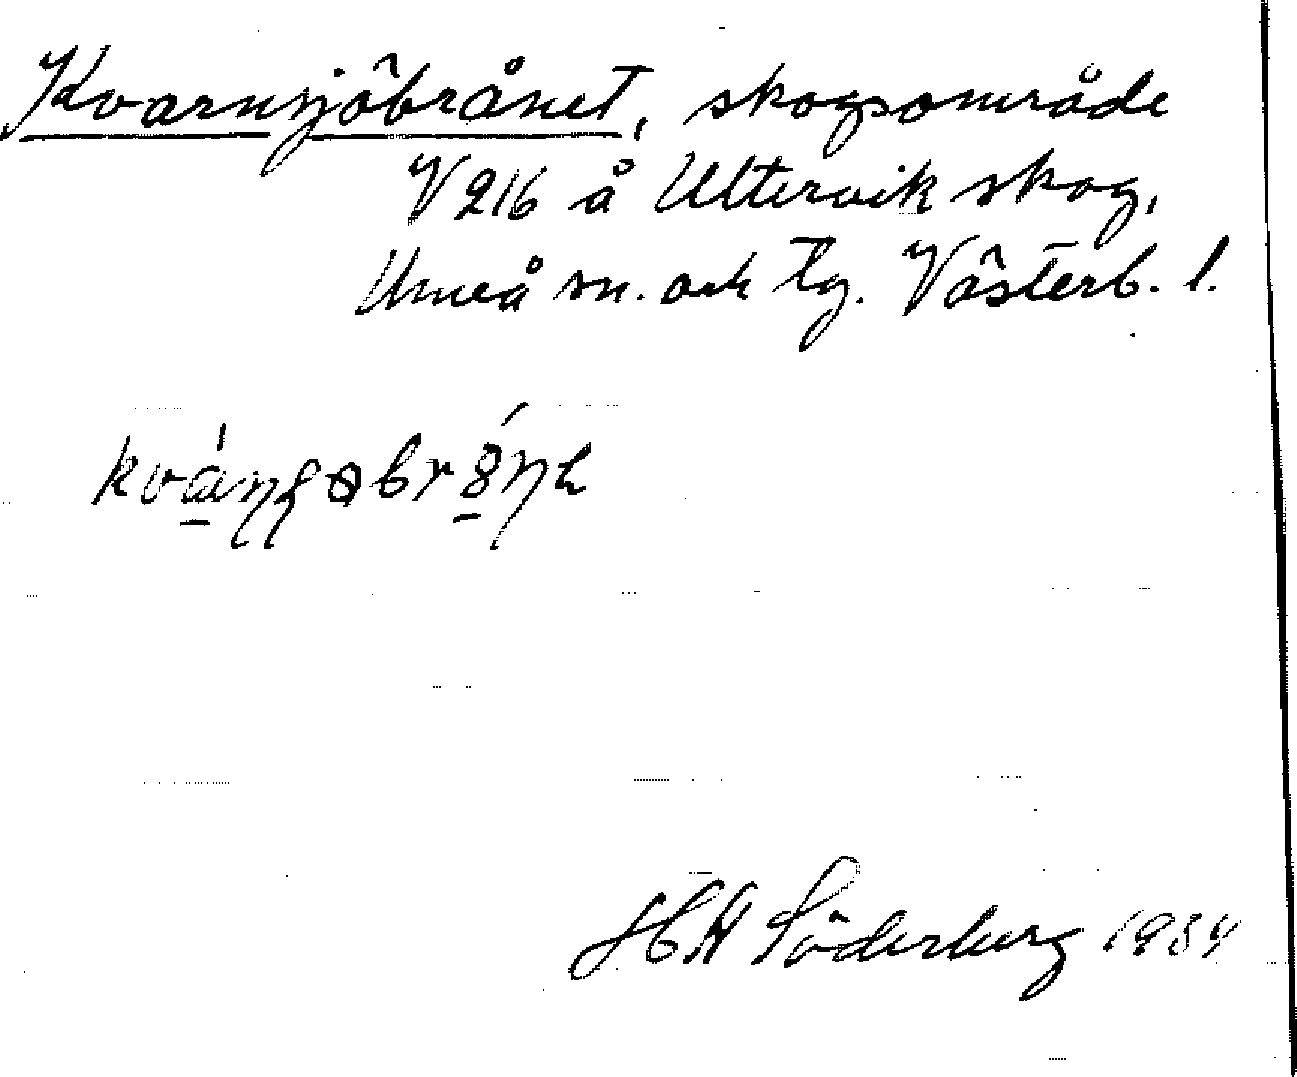 Kvarnsjöbrånet, skogsområde
V216 å Ultervik skog,
Umeå sn. och tg. Västerb. l.
H A Söderberg 1934